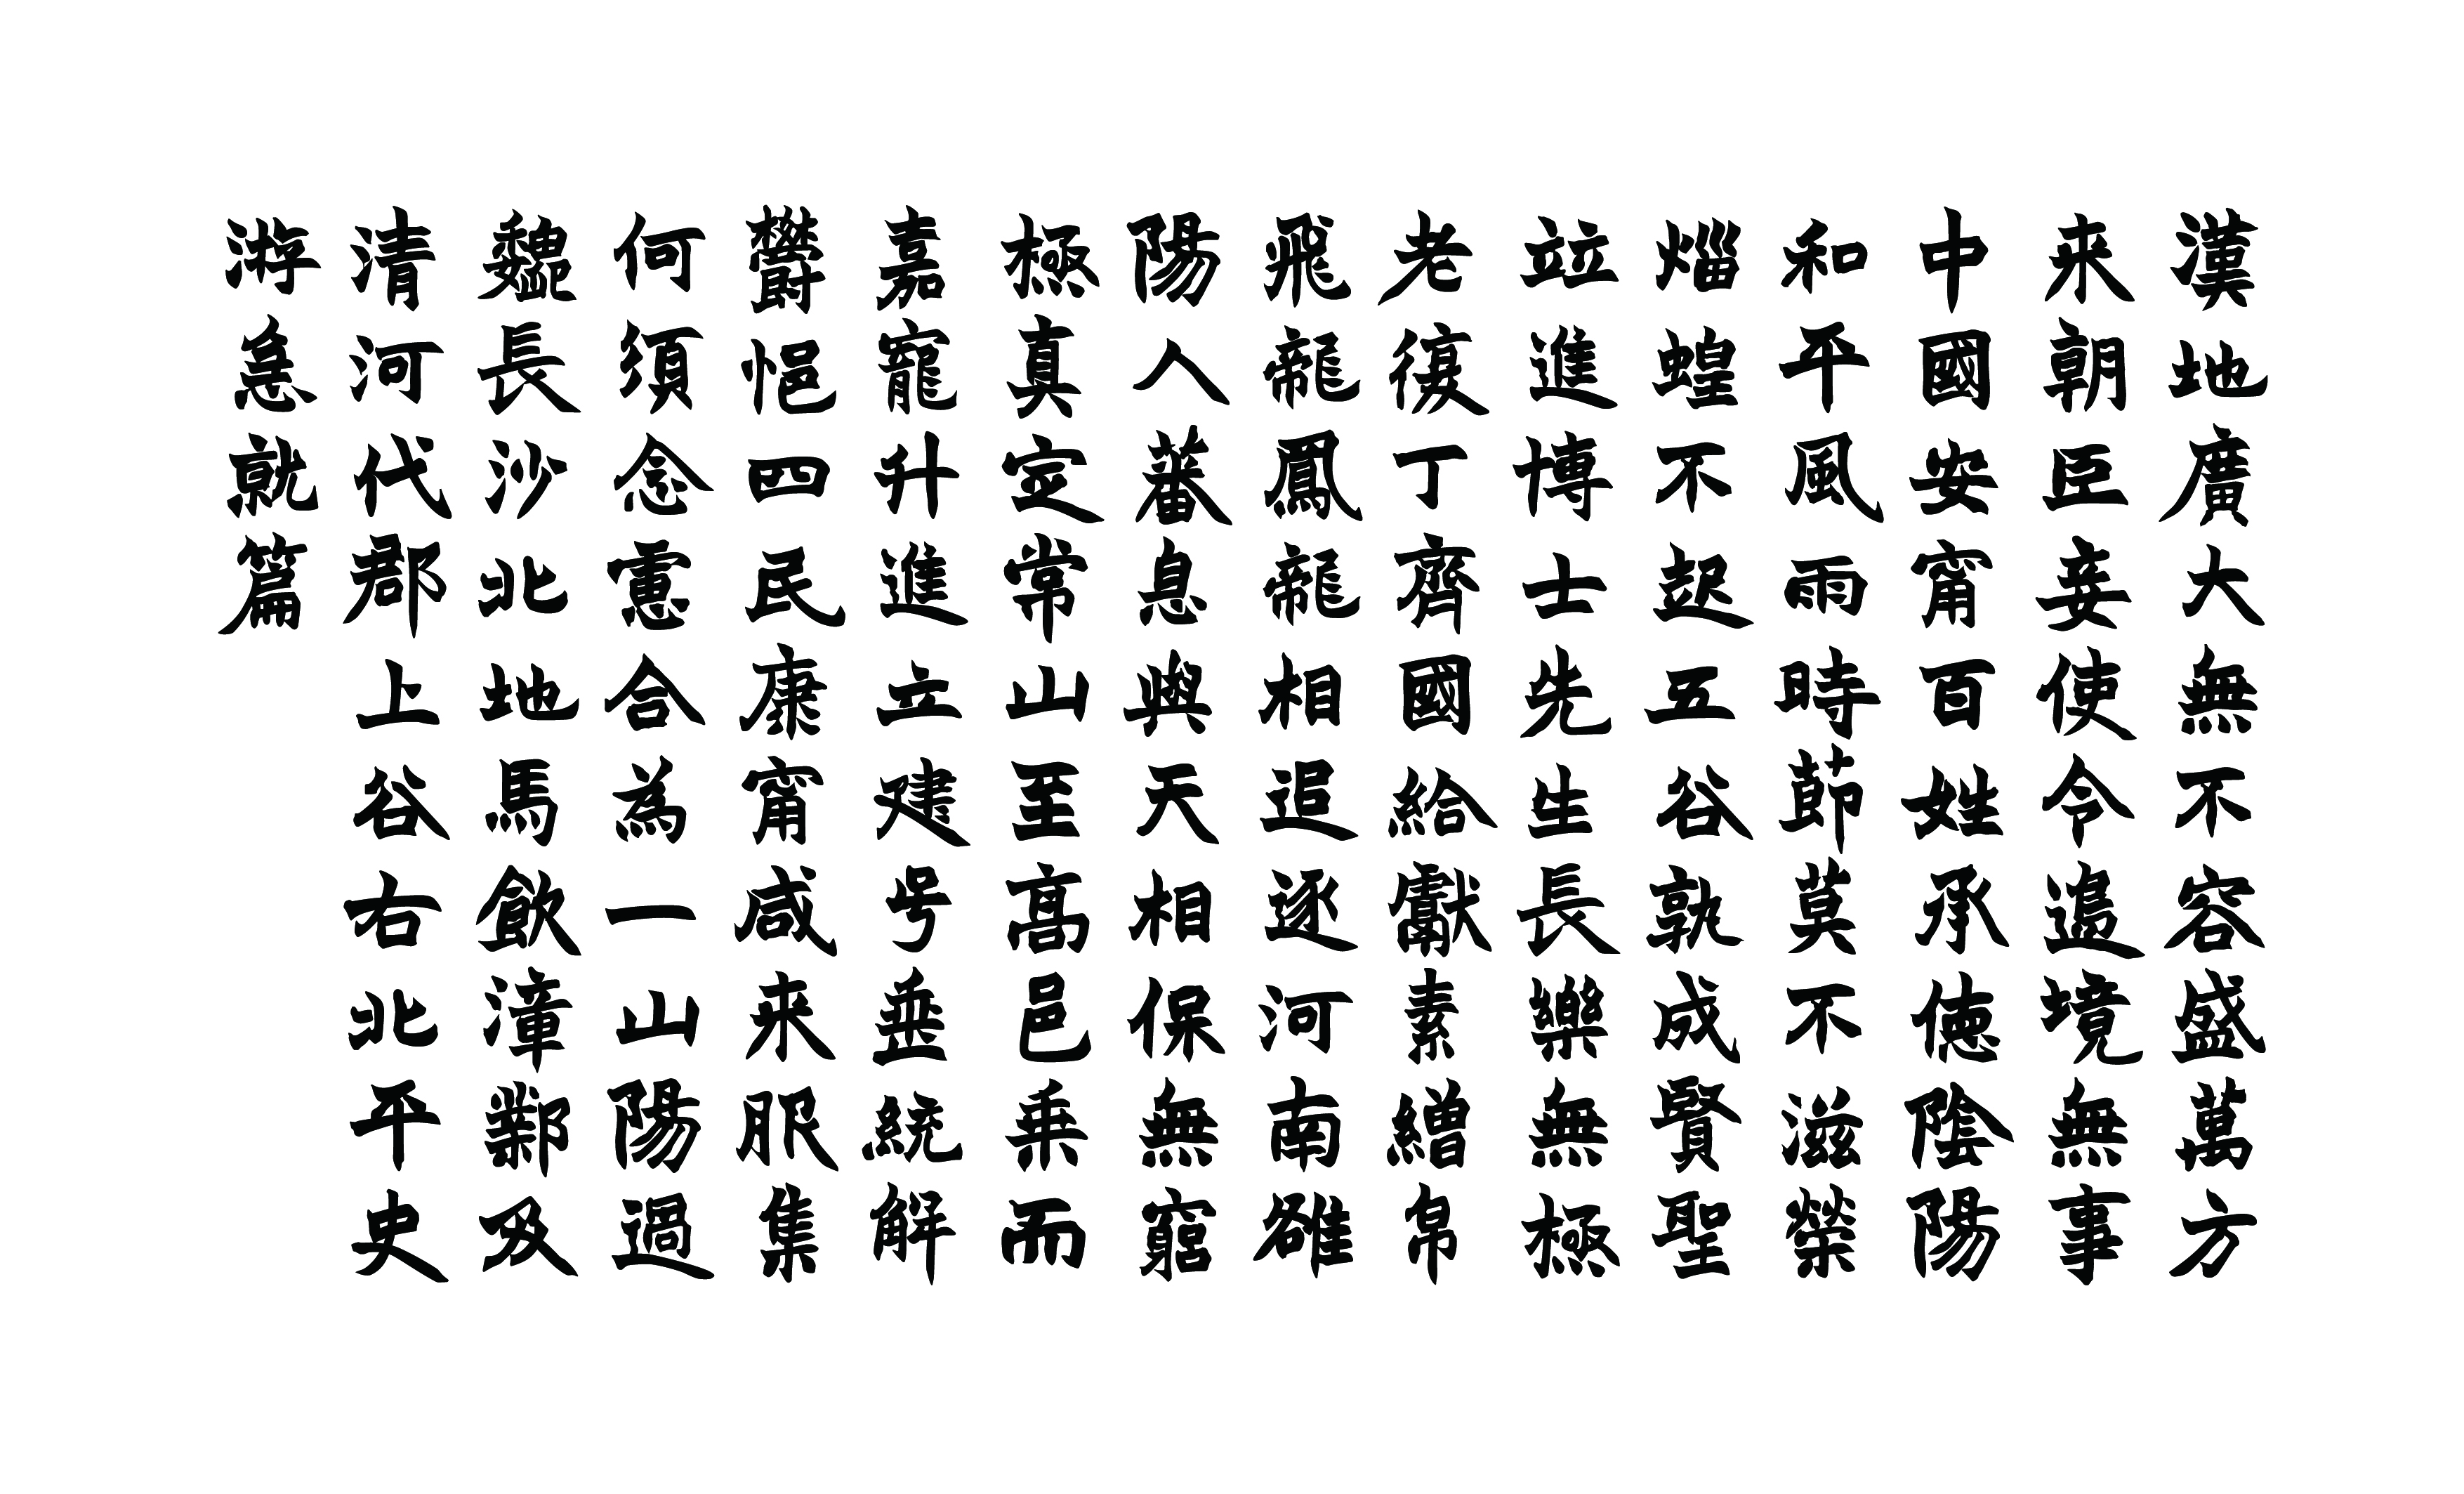 漢地廣大無不容盛萬方
来朝臣妾使令邊境無事
中國安寧百姓承德陰陽
和平風雨時節莫不滋榮
蝗不起五谷孰成賢聖
竝進博士先生長樂無極
老復丁齊國給獻素繒帛
飛龍鳳龍相追逐河南雒
陽人蕃息與天相保無窮
極真定常山至高邑而
嘉龍什進立建号垂統解
鬱悒四民康寧咸来服集
何須念慮合為一山陽過
魏長沙北地馬飲漳鄴及
清河代郡上谷右北平史
游急就篇